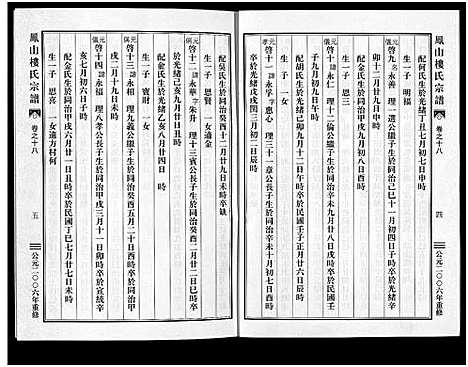 鳳山樓氏宗譜
卷之十八
四
公元二〇〇六年重修
配何氏生於光緒丁丑七月初七日申時
生一子 明福
啓九 永善 理一選公繼子生於同治己巳十一月初四日子時卒於光緒辛
卯十二月廿九日申時
配金氏生於同治甲戌九月初八日酉時
生一子 思
啓十 永仁 理十二倫公繼子生於光緒 八月廿八日戌時卒於民國壬
子九月初九日午時
配胡氏生於光緒 卒於民國壬子正月廿八日亥時
生一子 一女
啓十一 諱永孚字惠心 理三十一章公長子生於同治 五月廿九日寅
時卒於光緒 三月初二日辰時
配吳氏生於同治癸酉十二月廿九日未時卒缺
生一子 思賢 一女適金
啓十二 諱永華字朱升 理十三賓公長子生於同治癸酉二月廿一日未時卒
於光緒己亥九月廿日丑時
配金氏生於光緒乙亥八月廿四日 時
生一子 寶財 一女
啓十三 諱永相 理九義公繼子生於同治癸酉五月二十日酉時卒於同治甲
戌二月十九日未時
啓十四 諱永福 理八孝公長子生於同治甲戌三月十一日卯時卒於宣統辛
亥七月初六日子時
配金氏生於同治甲戌六月廿一日丑時卒於民國丁巳七月廿七日未時
生一子 思喜 一女適方村何
鳳山樓氏宗譜
卷之十八
五
公元二〇〇六年重修